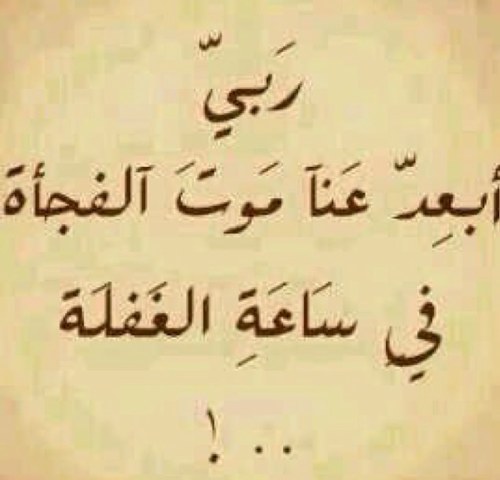 رَبيّ
أبعِدّ عَنآ مَوتَ آلفجأة
في سَاعَةِ الغَفلَة
..!